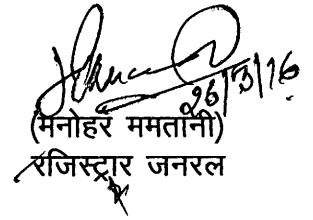 26/3/16
(मनोहर ममतानी)
रजिस्ट्रार जनरल